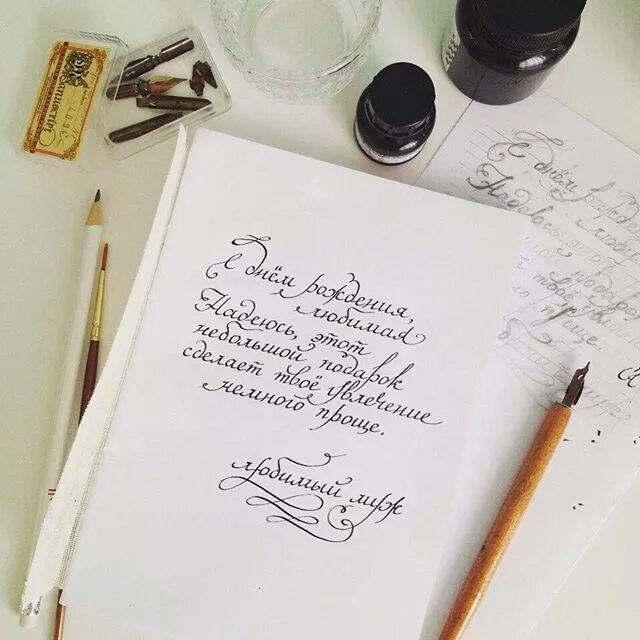 С днём рождения,
любимая
Надеюсь, этот
небольшой подарок
сделает твоё увлечение
немного проще.
любимый муж
С днём
Надеюсь
проще